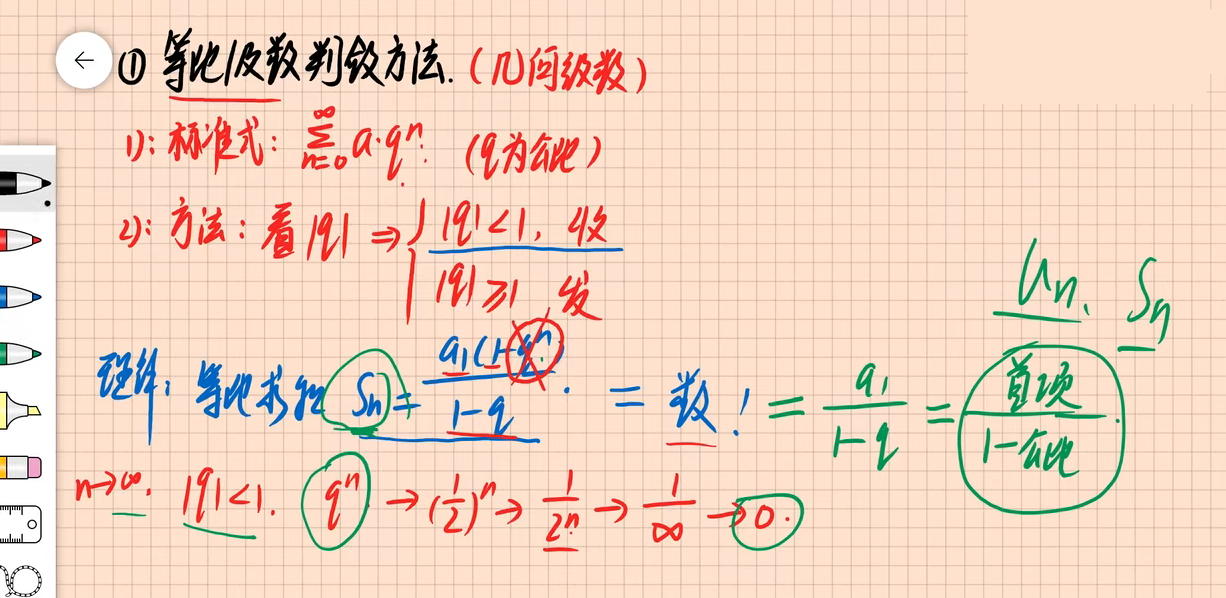 ① 等比级数判敛方法.(几何级数)
1): 标准式: ∑_{n=0}^{∞} a·qⁿ. (q为公比)
2): 方法: 看|q| ⇒ { |q|<1, 收
|q|⩾1 发
Un. Sn
理解: 等比求和 Sn = a₁(1-qⁿ)/(1-q). = 数! = a₁/(1-q) = 首项/(1-公比)
n→∞. |q|<1. qⁿ → (1/2)ⁿ → 1/2ⁿ → 1/∞ → 0.